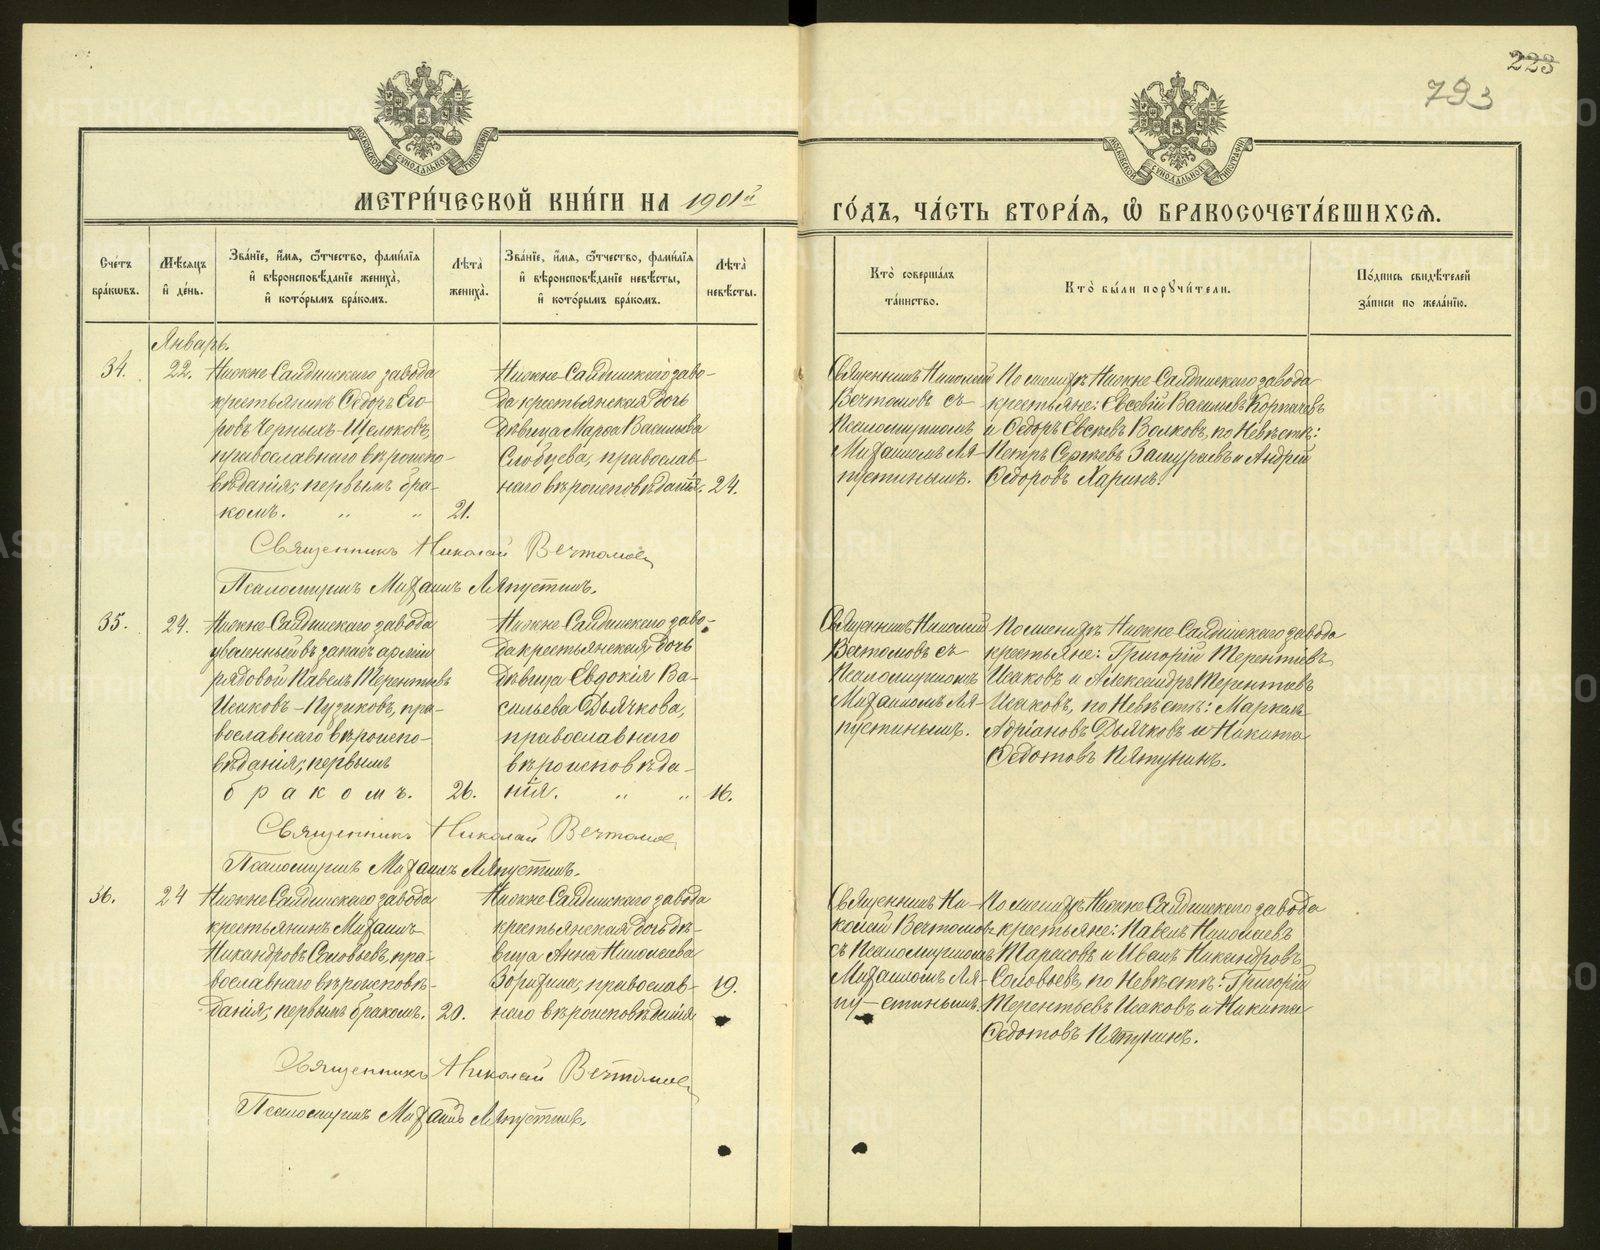 223
793
МЕТРИ́ЧЕСКОЙ КНИ́ГИ НА 1901й
ГО́ДЪ, ЧА́СТЬ ВТОРА́Я, Ѽ БРАКОСОЧЕТА́ВШИХСЯ.
Сче́тъ бра́кωвъ.
Мѣ́сяцъ и҆ де́нь.
Зва́нїе, и҆́мя, ѻ҆́тчество, фами́лїя
и҆ вѣроисповѣ́данїе жениха̀,
и҆ кото́рымъ бра́комъ.
Лѣ́та̀
жениха̀.
Зва́нїе, и҆́мя, ѻ҆́тчество, фами́лїя
и҆ вѣроисповѣ́данїе невѣ́сты,
и҆ кото́рымъ бра́комъ.
Лѣ́та̀
невѣ́сты.
Кто̀ соверша́лъ
та́инство.
Кто̀ бы́ли порꙋчи́тели.
По́дпись свидѣ́телей
за́писи по жела́нїю.
Январь.
34.
22.
Нижне-Салдинскаго завода
крестьянинъ Ѳедоръ Его-
ровъ Черныхъ-Щелоковъ,
православнаго вѣроиспо-
вѣданія; первымъ бра-
комъ. „ „
21.
Нижне-Салдинскаго заво-
да крестьянская дочь
дѣвица Марѳа Васильева
православ-
наго вѣроисповѣданія.
24.
Священникъ Николай
Вечтомовъ съ
Псаломщикомъ
Михаиломъ Ля-
пустинымъ.
По женихѣ Нижне-Салдинскаго завода
крестьяне: Евсевій Васильевъ
и Ѳедоръ Евсѣевъ Волковъ, по Невѣстѣ:
Петръ Сергѣевъ и Андрей
Ѳедоровъ Харинъ.
Священникъ Николай Вечтомовъ
Псаломщикъ Михаилъ Ляпустинъ.
35.
24.
Нижне-Салдинскаго завода
уволенный въ запасъ арміи
рядовой Павелъ Терентьевъ
Исаковъ-Пузиковъ, пра-
вославнаго вѣроиспо-
вѣданія; первымъ
бракомъ.
26.
Нижне-Салдинскаго заво-
да крестьянская дочь
дѣвица Евдокія Ва-
сильева Дьячкова,
православнаго
вѣроисповѣда-
нія. „ „
16.
Священникъ Николай
Вечтомовъ съ
Псаломщикомъ
Михаиломъ Ля-
пустинымъ.
По женихѣ Нижне-Салдинскаго завода
крестьяне: Григорій Терентьевъ
Исаковъ и Александръ Терентьевъ
Исаковъ, по Невѣстѣ: Маркелъ
Адріановъ Дьячковъ и Никита
Ѳедотовъ Пятунинъ.
Священникъ Николай Вечтомов
Псаломщикъ Михаилъ Ляпустинъ.
36.
24
Нижне-Салдинскаго завода
крестьянинъ Михаилъ
Никандровъ Соловьевъ, пра-
вославнаго вѣроисповѣ-
данія; первымъ бракомъ.
20.
Нижне-Салдинскаго завода
крестьянская дочь дѣ-
вица Анна Николаева
Зорихина, православ-
наго вѣроисповѣданія
19.
Священникъ Ни-
колай Вечтомовъ
съ Псаломщикомъ
Михаиломъ Ля-
пу-стинымъ.
По женихѣ Нижне-Салдинскаго завода
крестьяне: Павелъ Николаевъ
Тарасовъ и Иванъ Никандровъ
Соловьевъ, по Невѣстѣ: Григорій
Терентьевъ Исаковъ и Никита
Ѳедотовъ Пятунинъ.
Священникъ Николай Вечтомовъ
Псаломщикъ Михаилъ Ляпустинъ.